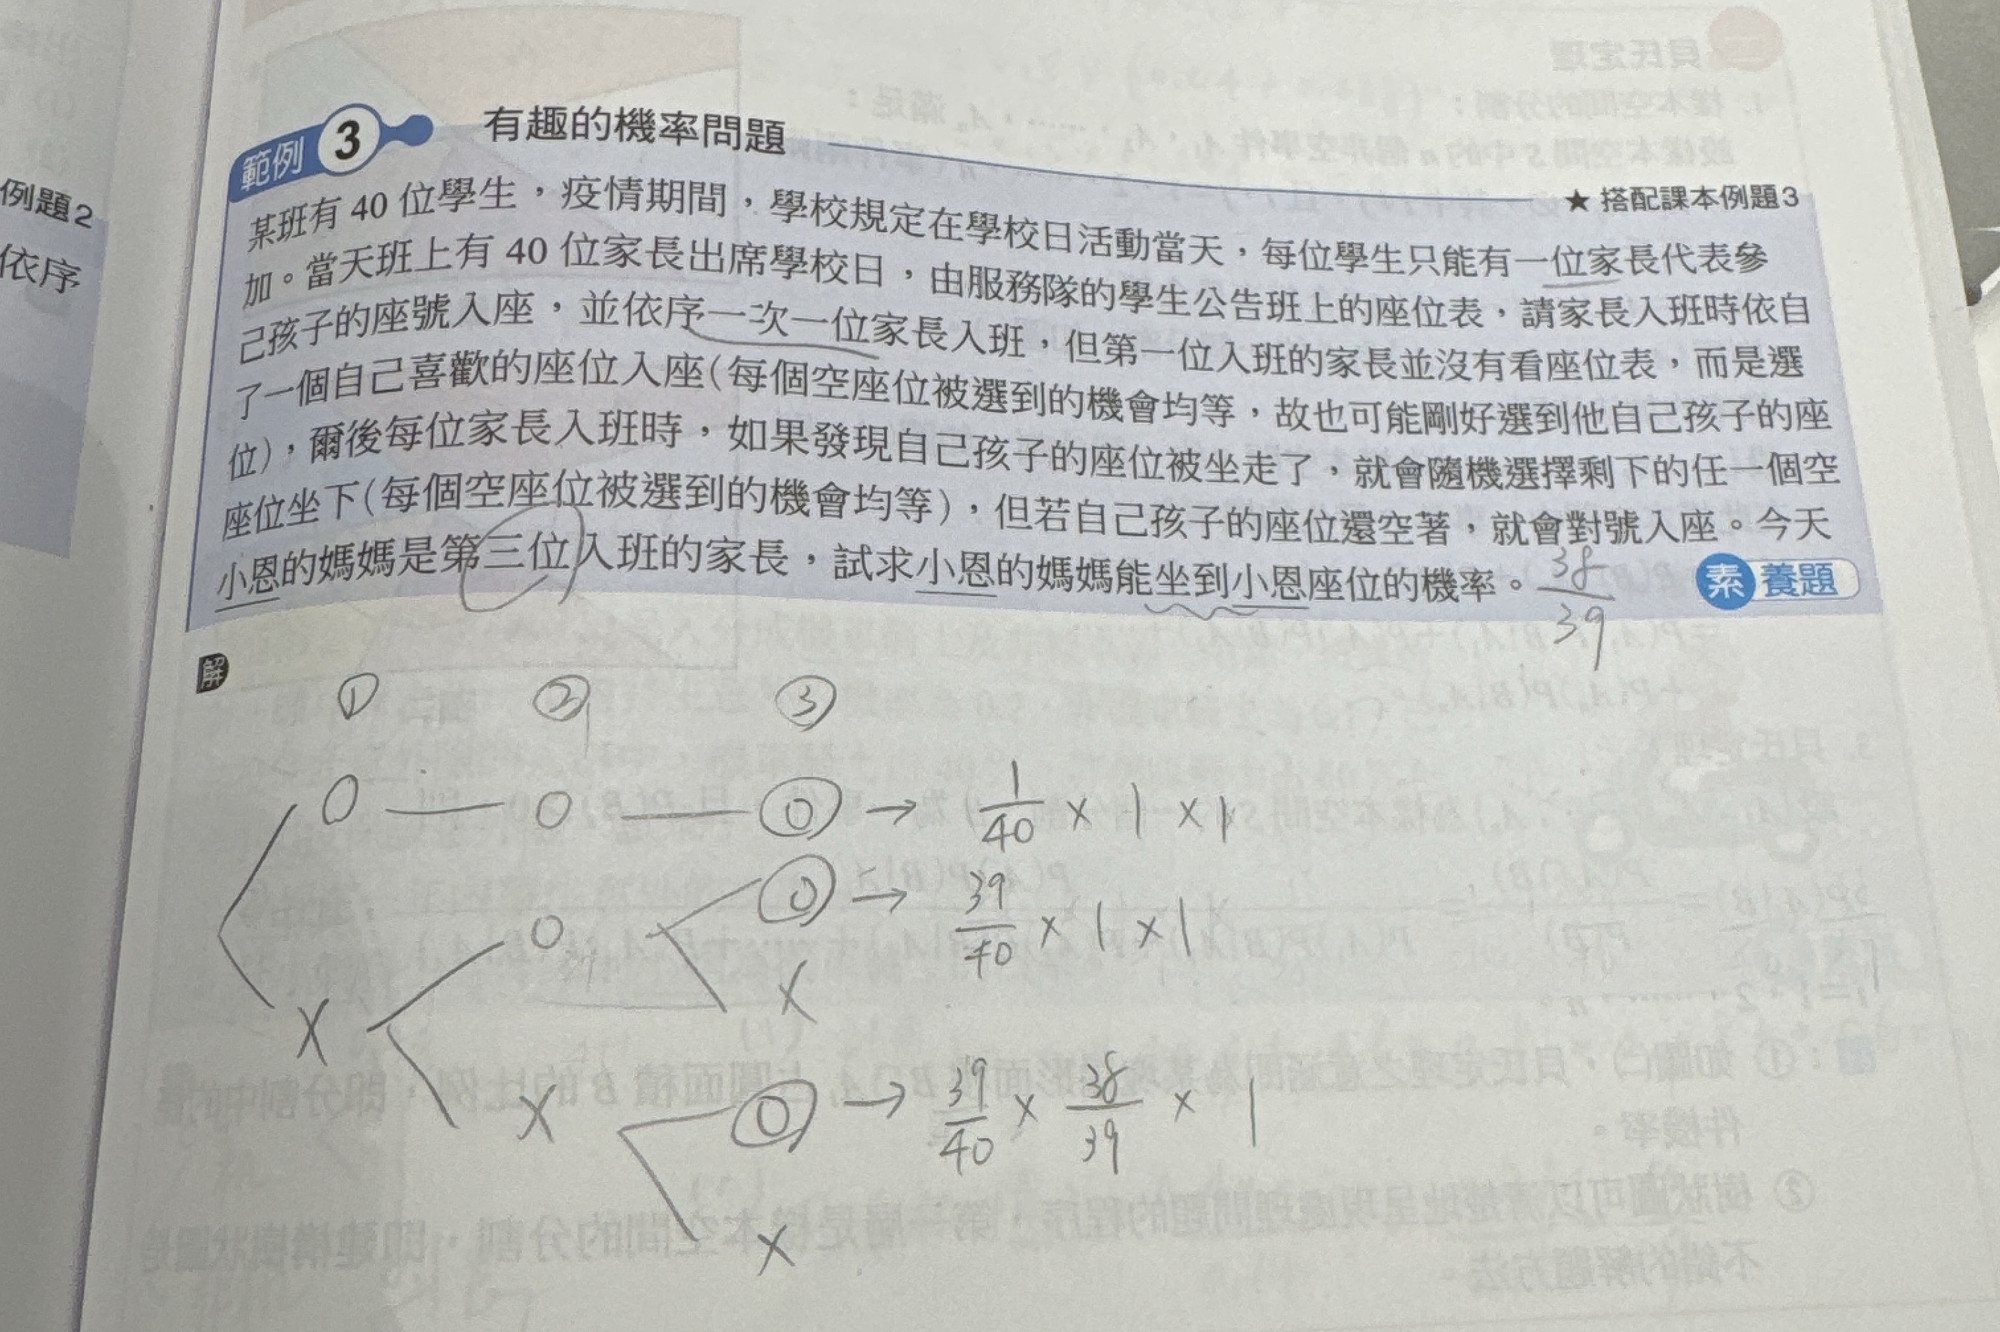 範例 3 有趣的機率問題
★ 搭配課本例題3
某班有 40 位學生，疫情期間，學校規定在學校日活動當天，每位學生只能有一位家長代表參
加。當天班上有 40 位家長出席學校日，由服務隊的學生公告班上的座位表，請家長入班時依自
己孩子的座號入座，並依序一次一位家長入班，但第一位入班的家長並沒有看座位表，而是選
了一個自己喜歡的座位入座（每個空座位被選到的機會均等，故也可能剛好選到他自己孩子的座
位），爾後每位家長入班時，如果發現自己孩子的座位被坐走了，就會隨機選擇剩下的任一個空
座位坐下（每個空座位被選到的機會均等），但若自己孩子的座位還空著，就會對號入座。今天
小恩的媽媽是第三位入班的家長，試求小恩的媽媽能坐到小恩座位的機率。 38/39 素養題
解
① ② ③
O — O — O → 1/40 × 1 × 1
O → 39/40 × 1 × 1
O
X
X
X O → 39/40 × 38/39 × 1
X
例題2
依序